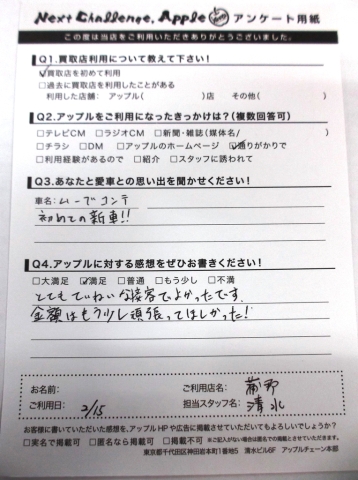 Next Challenge, Apple アンケート用紙
この度は当店をご利用いただきありがとうございました。
Q1.買取店利用について教えて下さい!
☑買取店を初めて利用
□過去に買取店を利用したことがある
利用した店舗: アップル( )店 その他( )
Q2.アップルをご利用になったきっかけは?(複数回答可)
□テレビCM □ラジオCM □新聞・雑誌(媒体名/ )
□チラシ □DM □アップルのホームページ ☑通りがかりで
□利用経験があるので □紹介 □スタッフに誘われて
Q3.あなたと愛車との思い出を聞かせください!
車名:ムーブコンテ
初めての新車!!
Q4.アップルに対する感想をぜひお書きください!
□大満足 ☑満足 □普通 □もう少し □不満
とてもていねいな接客でよかったです。
金額はもう少し頑張ってほしかった!
お名前: ご利用店名: 蒲郡
ご利用日: 2/15 担当スタッフ名: 清水
お客様に書いていただいた感想を、アップルHPや広告に掲載させていただいてもよろしいでしょうか?
□実名で掲載可 □匿名なら掲載可 □掲載不可 ※ご記入がない場合は匿名での掲載とさせていただきます。
東京都千代田区神田岩本町1番地5 清水ビル6F アップルチェーン本部